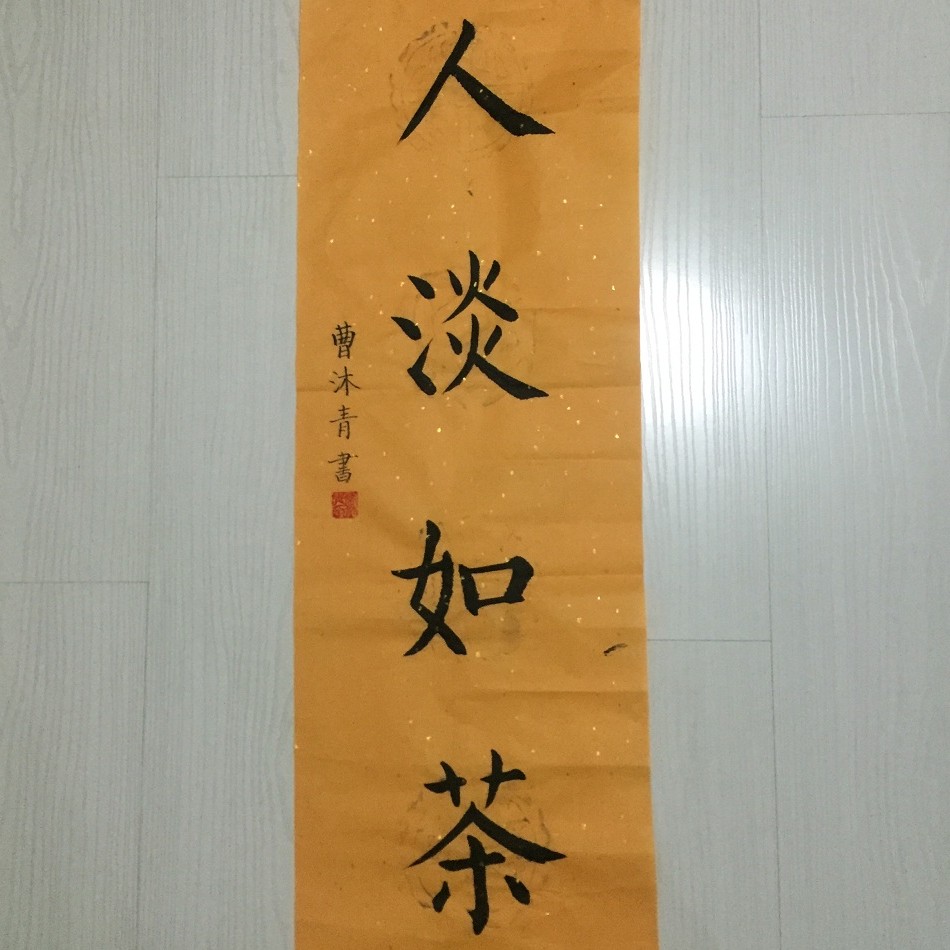 人淡如茶
曹沐青書